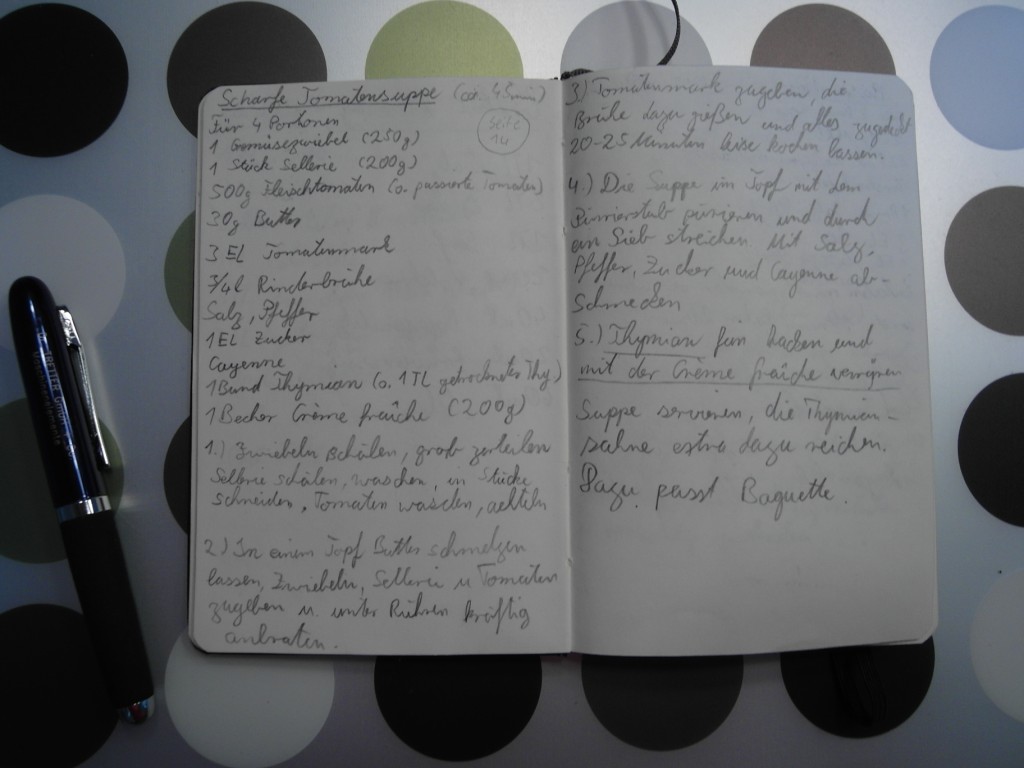 Scharfe Tomatensuppe (ca. 45min)
Seite 14
Für 4 Portionen
1 Gemüsezwiebel (250g)
1 Stück Sellerie (200g)
500g Fleischtomaten (o. passierte Tomaten)
30g Butter
3 EL Tomatenmark
3/4l Rinderbrühe
Salz, Pfeffer
1 EL Zucker
Cayenne
1 Bund Thymian (o. 1TL getrockneter Thy)
1 Becher Crème fraîche (200g)
1.) Zwiebeln schälen, grob zerteilen
Sellerie schälen, waschen, in Stücke
schneiden, Tomaten waschen, achteln
2.) In einem Topf Butter schmelzen
lassen, Zwiebeln, Sellerie u Tomaten
zugeben u. unter Rühren kräftig
anbraten.
3.) Tomatenmark zugeben, die
Brühe dazu gießen und alles zugedeckt
20-25 Minuten leise kochen lassen.
4.) Die Suppe im Topf mit dem
Pürierstab pürieren und durch
ein Sieb streichen. Mit Salz,
Pfeffer, Zucker und Cayenne ab-
schmecken
5.) Thymian fein hacken und
mit der Crème fraîche verrühren
Suppe servieren, die Thymian-
sahne extra dazu reichen.
Dazu passt Baguette.